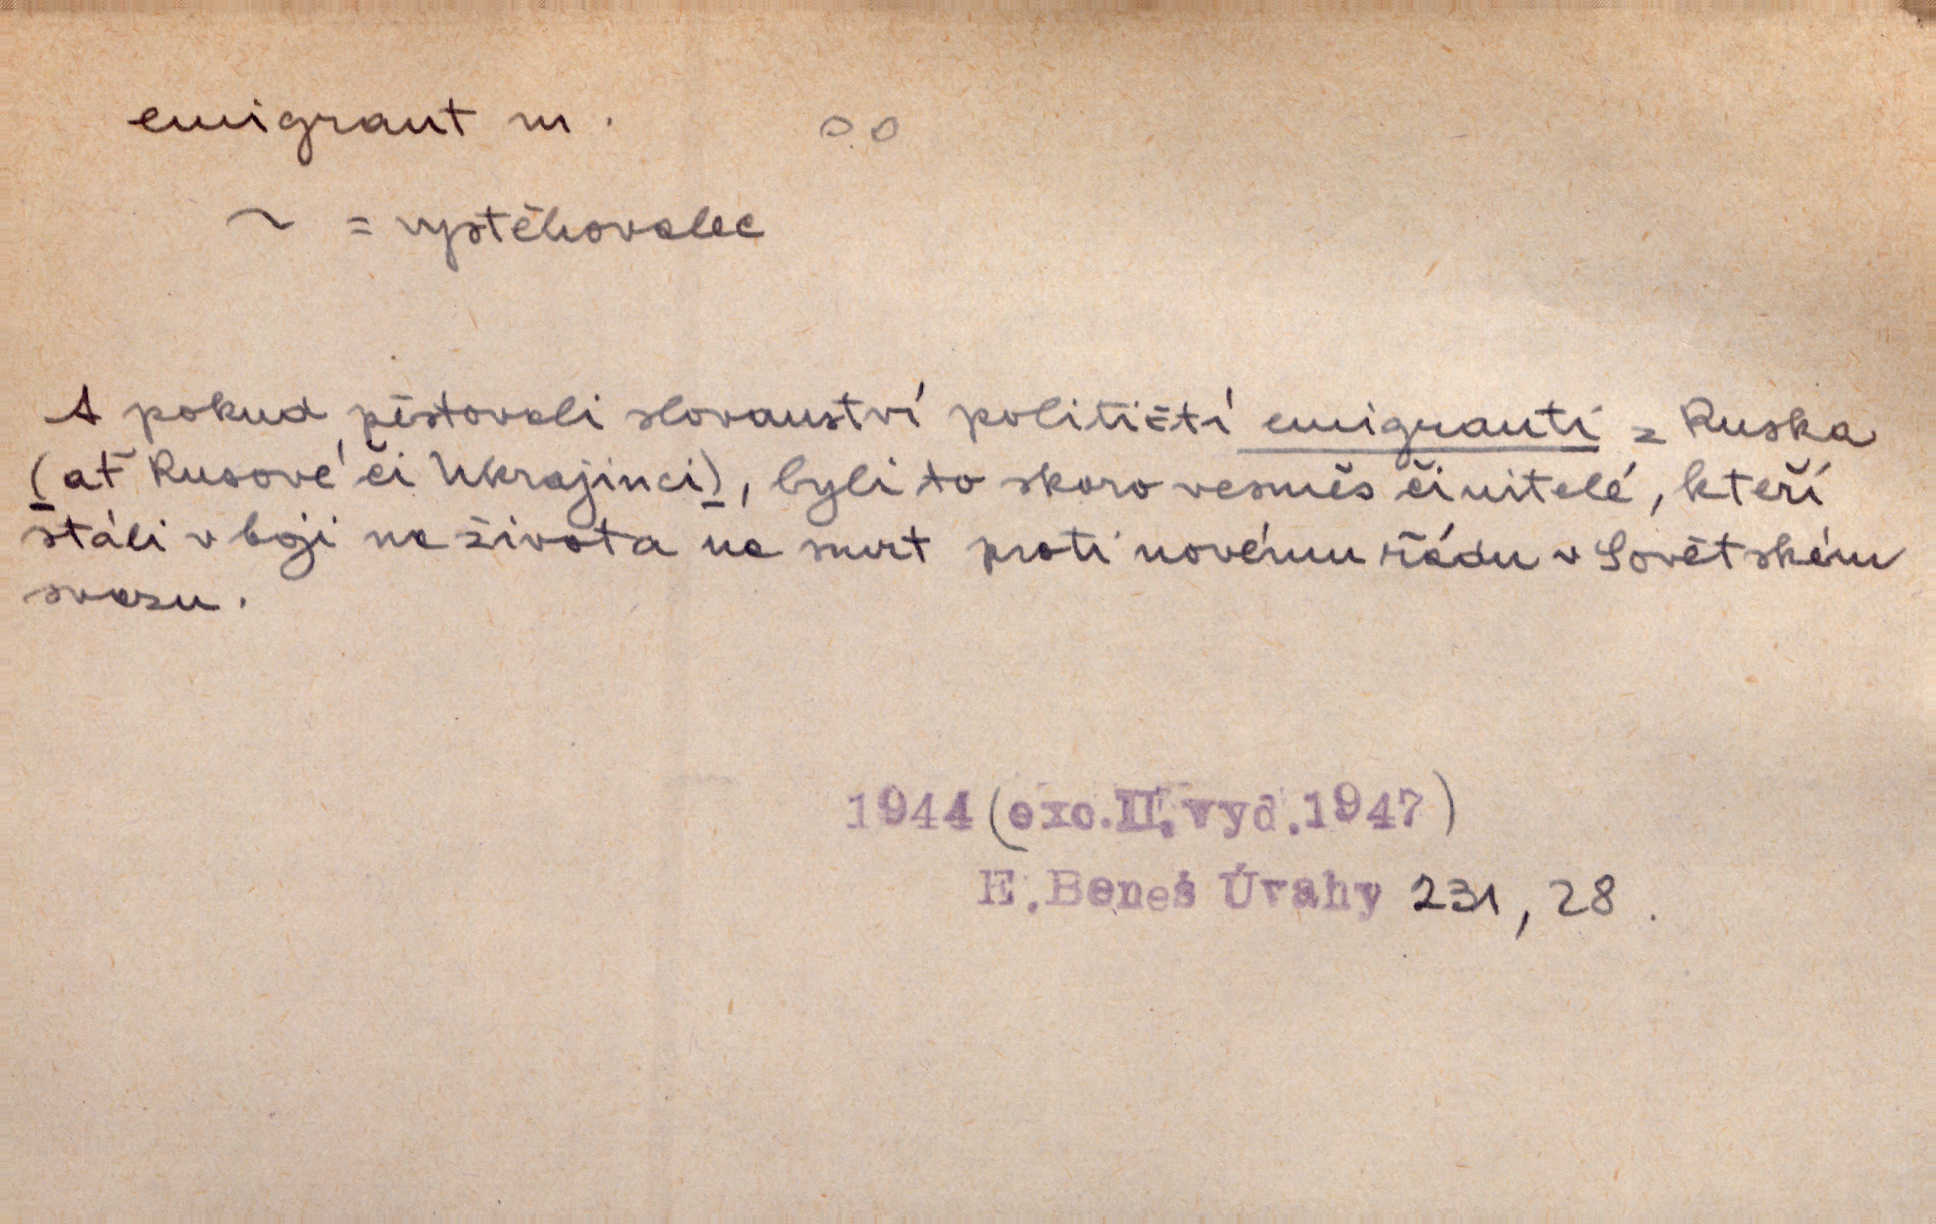 emigrant m.
~ = vystěhovalec
A pokud pěstovali slovanství političtí emigranti z Ruska
(ať Rusové či Ukrajinci), byli to skoro vesměs činitelé, kteří
stáli v boji na života na smrt proti novému řádu v Sovětském
svazu.
1944 (exc.II.vyd.1947)
E.Beneš Úvahy 231, 28.